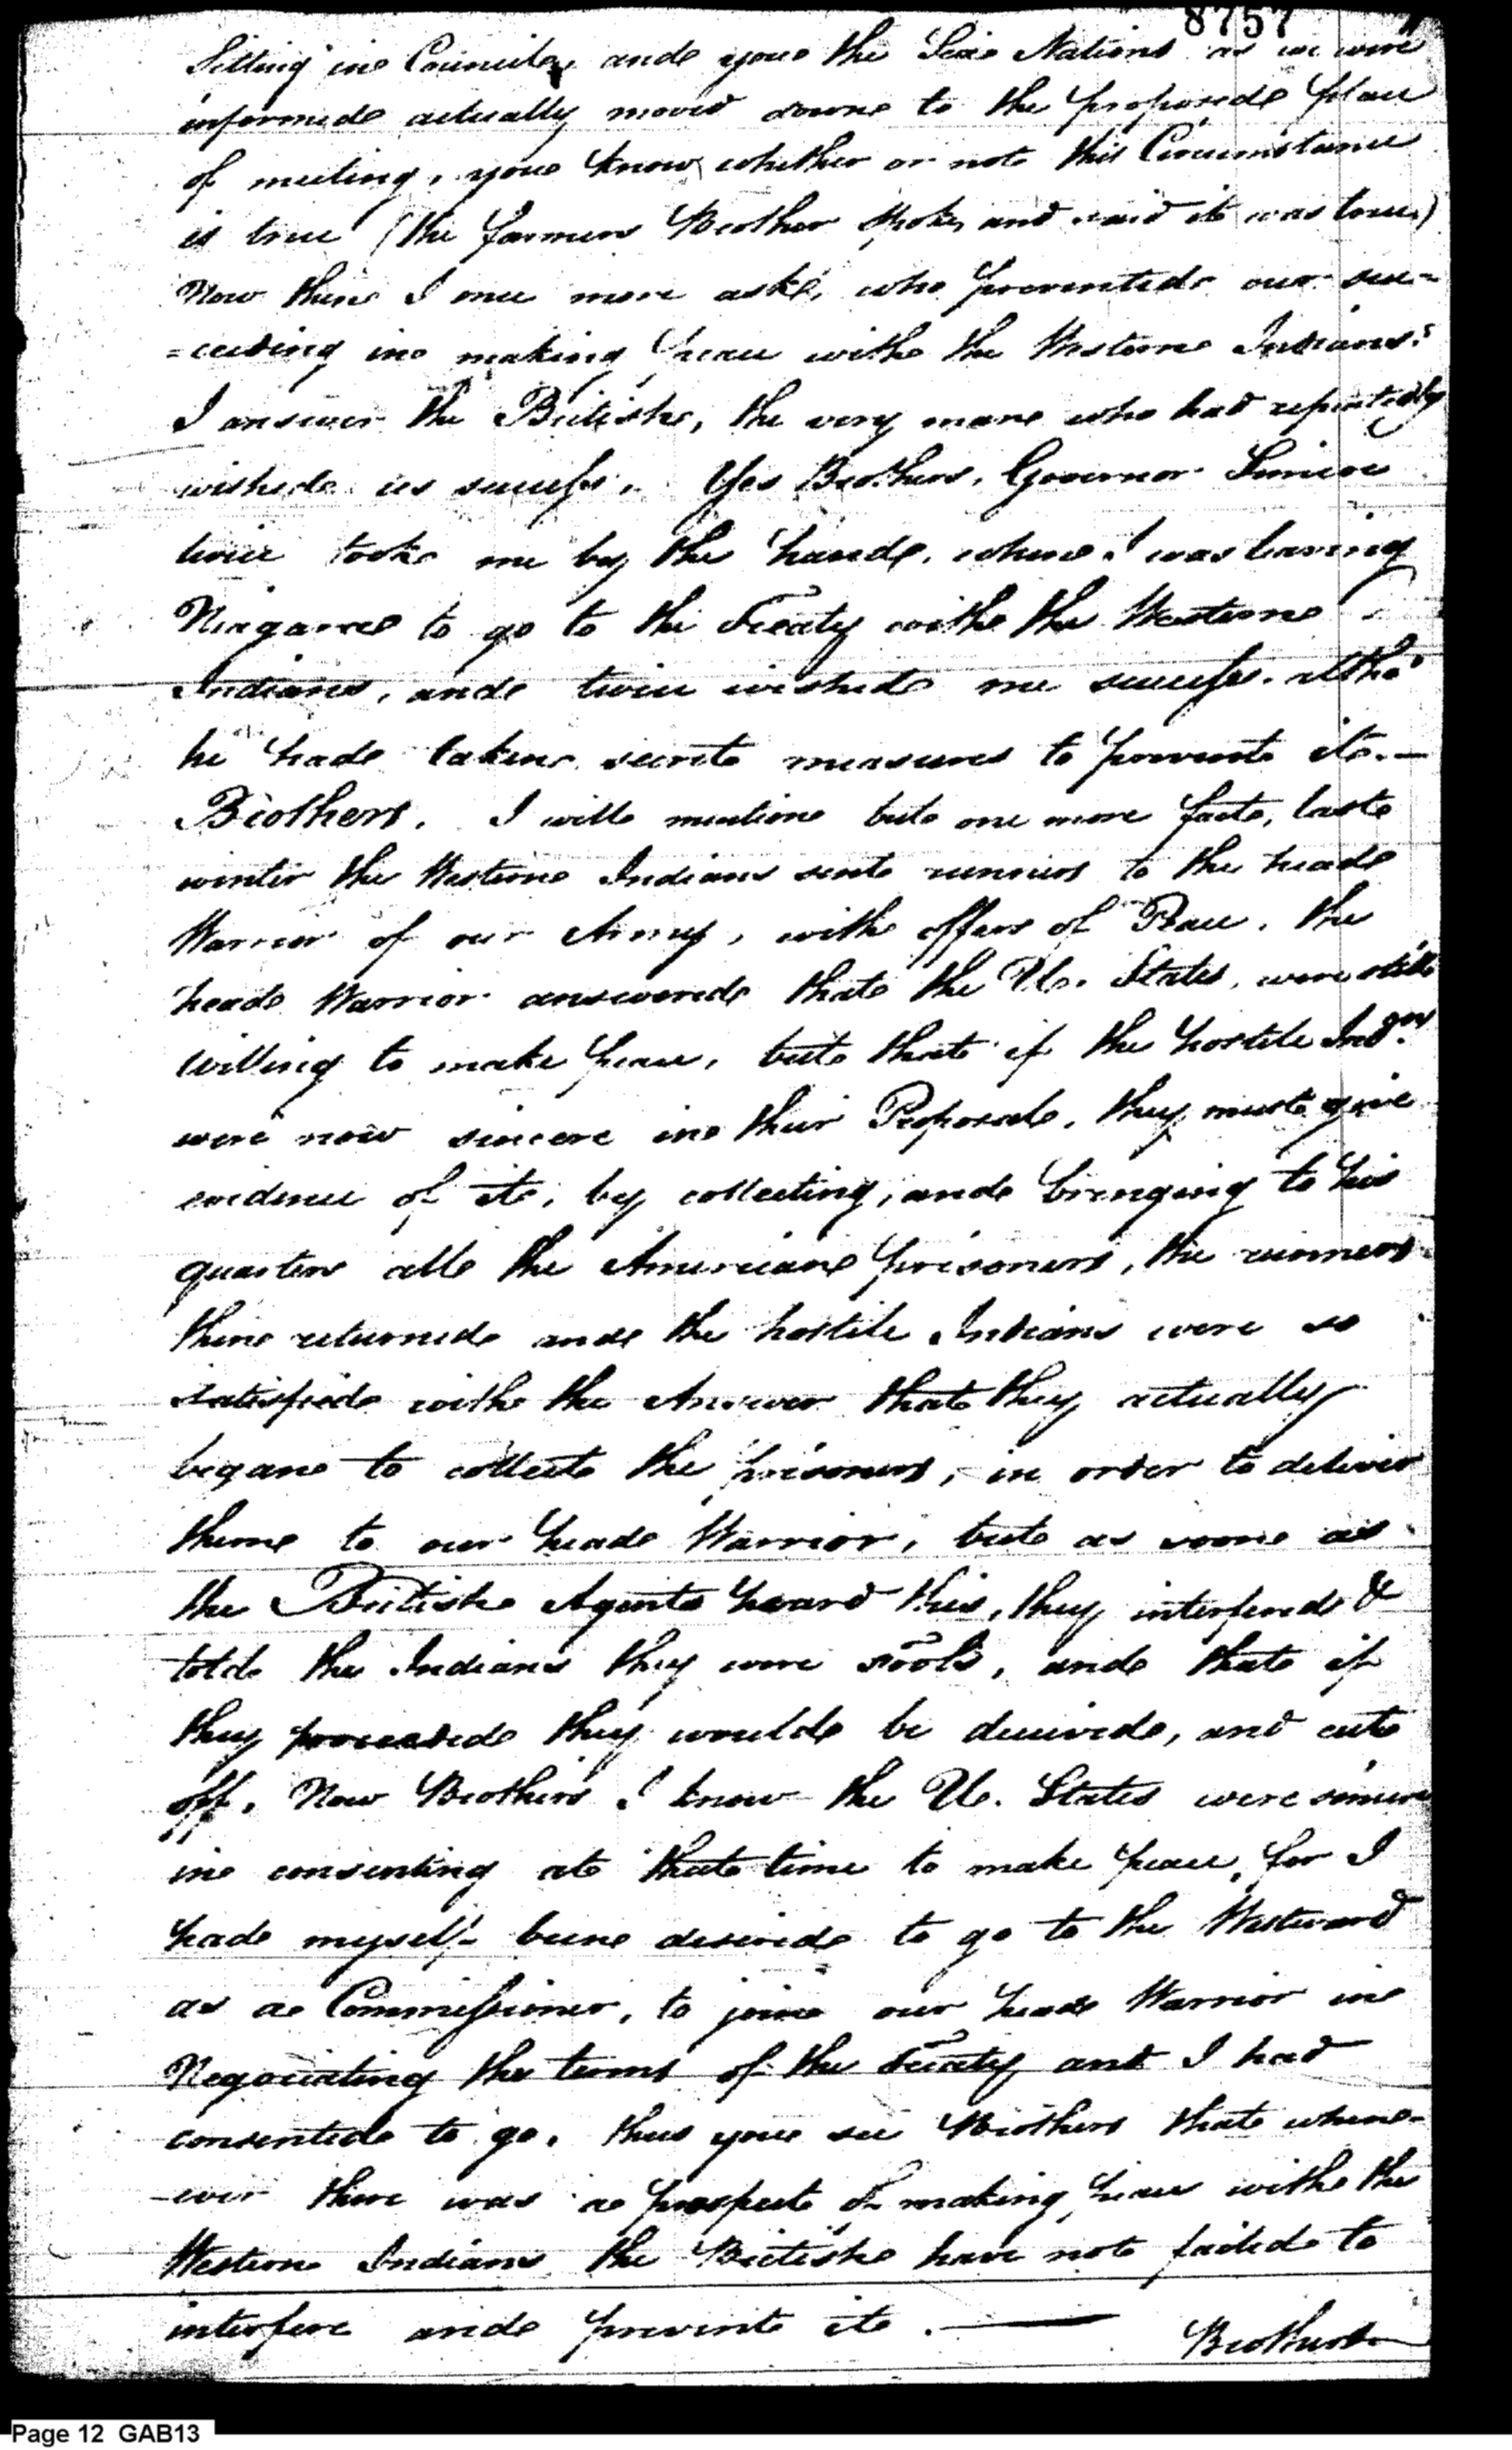 8757
Sitting in Council, and you the Six Nations as we were
informed actually moved down to the proposed place
of meeting, you know whether or not this Circumstance
is true (the farmers Brother spoke, and said it was true)
Now then I once more ask, who prevented our suc=
=ceeding in making peace with the Western Indians?
I answer the British, the very man who had repeatedly
wished us success. Yes Brothers, Governor Simcoe
twice took me by the hand, when I was leaving
Niagara to go to the Treaty with the Western
Indians, and twice wished me success. altho'
he had taken secret measures to prevent it.—
Brothers. I will mention but one more fact, last
winter the Western Indians sent runners to the head
Warrior of our Army, with offers of Peace. the
head Warrior answered that the U. States, were still
willing to make peace, but that if the hostile Indns.
were now sincere in their Proposals, they must give
evidence of it, by collecting, and bringing to his
quarters all the American prisoners, the runners
then returned and the hostile Indians were so
satisfied with the Answer that they actually
began to collect the prisoners, in order to deliver
them to our head Warrior, but as soon as
the British Agents heard this, they interfered &
told the Indians they were fools, and that if
they proceeded they would be deceived, and cut
off. Now Brothers I know the U. States were sincere
in consenting at that time to make peace, for I
had myself been desired to go to the Westward
as a Commissioner, to join our head Warrior in
Negociating the terms of the Treaty and I had
consented to go. thus you see Brothers that when-
-ever there was a prospect of making peace with the
Western Indians the British have not failed to
interfere and prevent it. —
Brothers
Page 12 GAB13